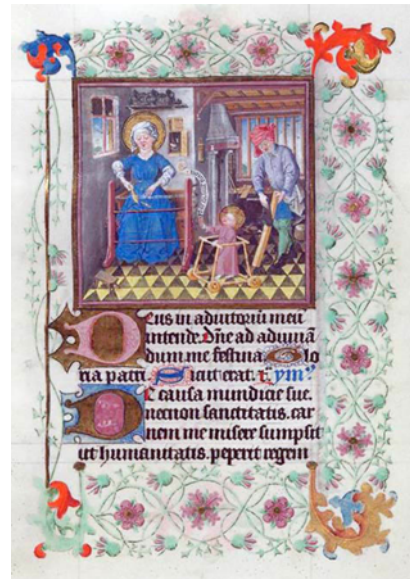 Deus in adiutoriū meū
intende. Dñe ad adiuuā
dum me festina. Glo
ria patri Sicut erat. ym⁹
causa mundicie sue.
necnon sanctitatis. car
nem me misere sumpsit
ut humanitatis. peperit regem